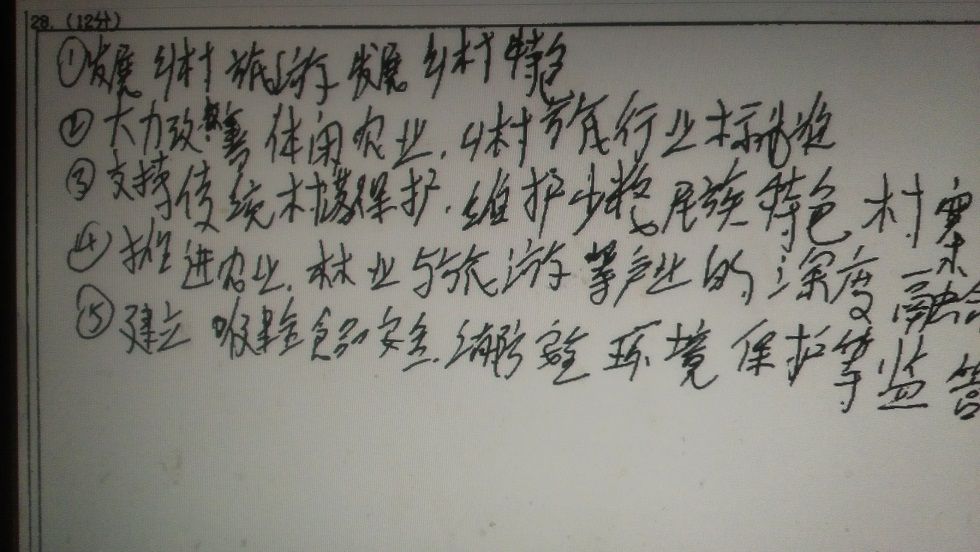 28.(12分)
①发展乡村旅游发展乡村特色
②大力改善休闲农业.乡村旅行业标准
③支持传统村落保护.维护少数民族特色村寨
④推进农业.林业与旅游等产业的深度融合
⑤建立 健全食品安全.消防安全环境保护等监管